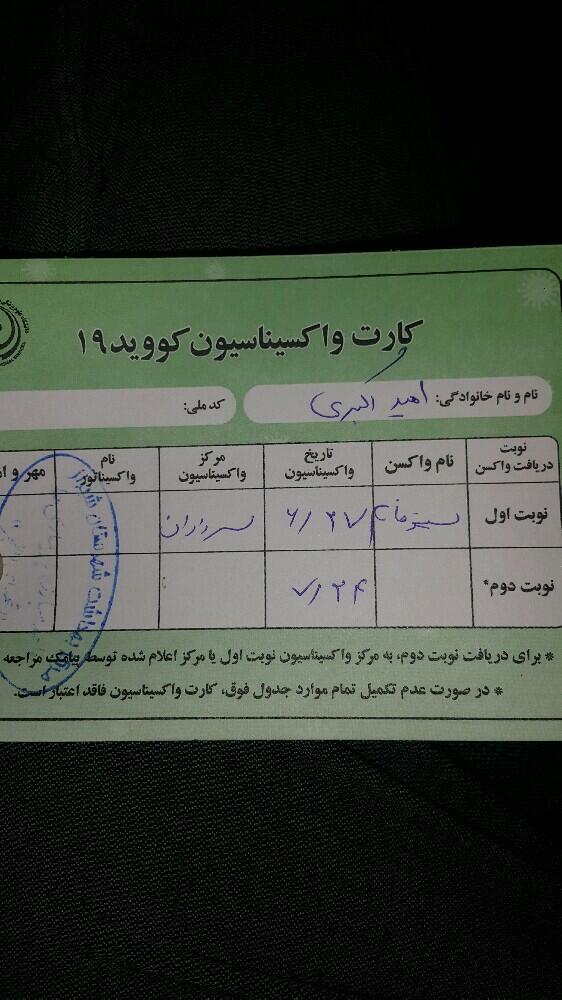 کارت واکسیناسیون کووید۱۹
نام و نام خانوادگی: امید اکبری کد ملی:
نوبت دریافت واکسن نام واکسن تاریخ واکسیناسیون مرکز واکسیناسیون نام واکسیناتور مهر و ام
نوبت اول سینوفارم ۶/۲۷ سرداران
نوبت دوم* ۷/۲۴
* برای دریافت نوبت دوم، به مرکز واکسیناسیون نوبت اول یا مرکز اعلام شده توسط پیامک مراجعه
* در صورت عدم تکمیل تمام موارد جدول فوق، کارت واکسیناسیون فاقد اعتبار است.